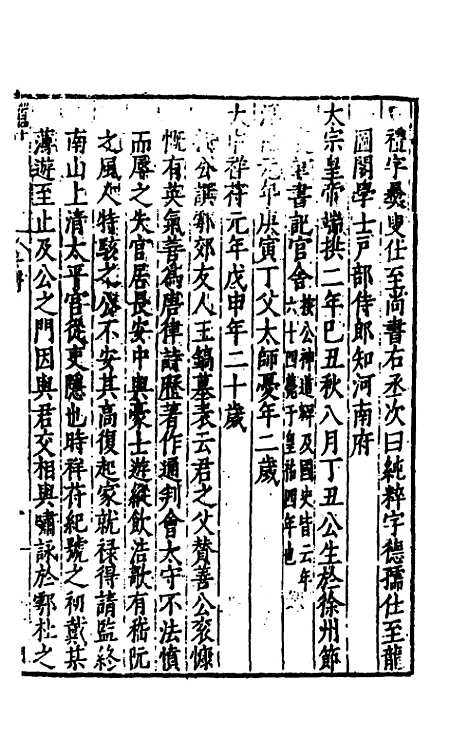 禮字彝叟仕至尚書右丞次曰純粹字德孺仕至龍
圖閣學士戶部侍郎知河南府
太宗皇帝端拱二年己丑秋八月丁丑公生於徐州節
書記官舍按公神道碑及國史皆云年六十四薨于皇祐四年也
元年庚寅丁父太師憂年二歲
祥符元年戊申年二十歲
公譔鄠郊友人王鎬墓表云君之父贊善公衮慷
慨有英氣善爲唐律詩歷著作通判會太守不法憤
而辱之失官居長安中與豪士遊縱飲浩歌有嵇阮
之風人特駭之公不安其高復起家就祿得請監終
南山上清太平宮從吏隱也時祥符紀號之初載某
薄遊至止及公之門因與君交相與嘯詠於鄠杜之